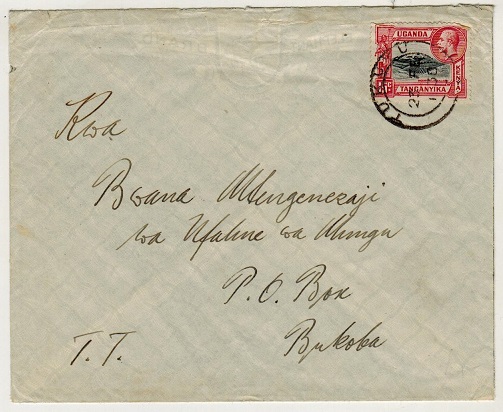 UGANDA
KENYA
TANGANYIKA
Kwa
Bwana Mtengenezaji
wa Ufalme wa Mungu
P. O. Box
Bukoba
T. T.